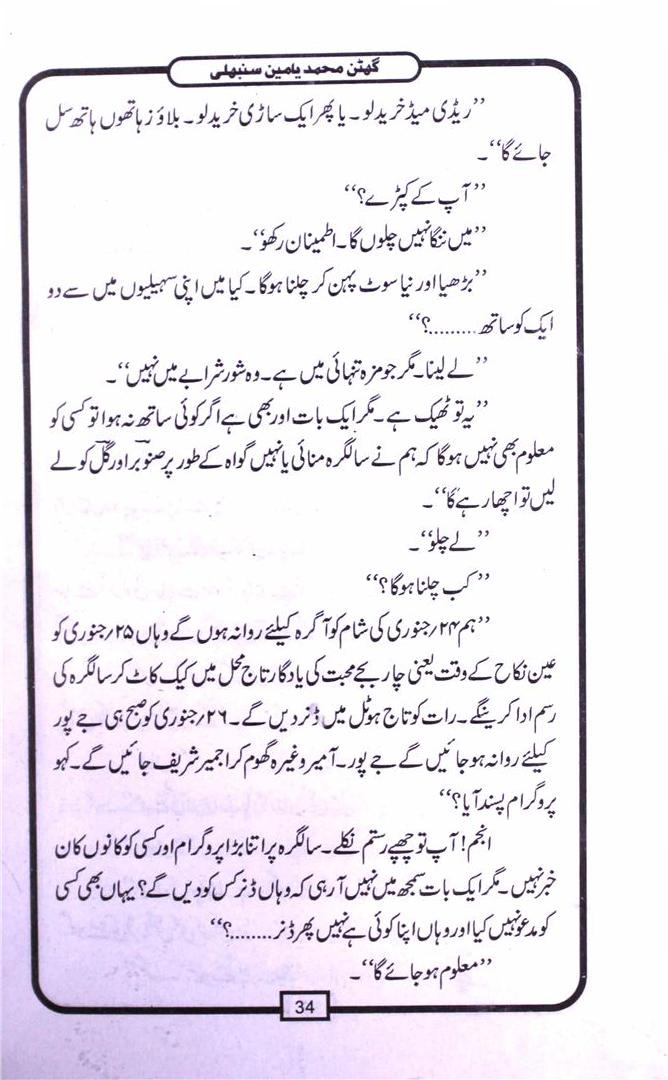 گھٹن محمد یامین سنبھلی
’’ریڈی میڈ خرید لو۔ یا پھر ایک ساڑی خرید لو۔ بلاؤز ہاتھوں ہاتھ سل
جائے گا‘‘۔
’’آپ کے کپڑے؟‘‘
’’میں ننگا نہیں چلوں گا۔ اطمینان رکھو‘‘۔
’’بڑھیا اور نیا سوٹ پہن کر چلنا ہوگا۔ کیا میں اپنی سہیلیوں میں سے دو
ایک کو ساتھ.........؟‘‘
’’لے لینا۔ مگر جو مزہ تنہائی میں ہے۔ وہ شور شرابے میں نہیں‘‘۔
’’یہ تو ٹھیک ہے۔ مگر ایک بات اور بھی ہے اگر کوئی ساتھ نہ ہوا تو کسی کو
معلوم بھی نہیں ہوگا کہ ہم نے سالگرہ منائی یا نہیں گواہ کے طور پر صنوبر اور گل کو لے
لیں تو اچھا رہے گا‘‘۔
’’لے چلو‘‘۔
’’کب چلنا ہوگا؟‘‘
’’ہم ۲۴؍جنوری کی شام کو آگرہ کیلئے روانہ ہوں گے وہاں ۲۵؍جنوری کو
عین نکاح کے وقت یعنی چار بجے محبت کی یادگار تاج محل میں کیک کاٹ کر سالگرہ کی
رسم ادا کرینگے۔ رات کو تاج ہوٹل میں ڈنر دیں گے۔ ۲۶؍جنوری کو صبح ہی جے پور
کیلئے روانہ ہو جائیں گے جے پور۔ آمیر وغیرہ گھوم کر اجمیر شریف جائیں گے۔ کہو
پروگرام پسند آیا؟‘‘
انجم! آپ تو چھپے رستم نکلے۔ سالگرہ پر اتنا بڑا پروگرام اور کسی کو کانوں کان
خبر نہیں۔ مگر ایک بات سمجھ میں نہیں آ رہی کہ وہاں ڈنر کس کو دیں گے؟ یہاں بھی کسی
کو مدعو نہیں کیا اور وہاں اپنا کوئی ہے نہیں پھر ڈنر........؟‘‘
’’معلوم ہو جائے گا‘‘۔
34